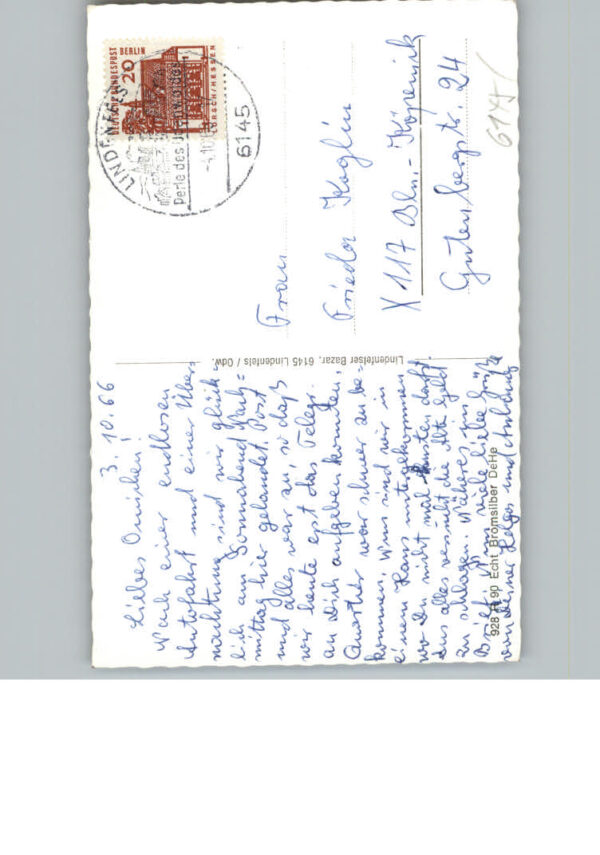 3.10.66
Liebes Omichen!
Nach einer endlosen
Autofahrt und einer Über-
nachtung sind wir glück-
lich am Sonnabend Nach=
mittag hier gelandet. Post
und alles war zu, so daß
wir heute erst das Telegr.
an Dich aufgeben konnten.
Quartier war schwer zu be-
kommen. Nun sind wir in
einem Haus untergekommen
wo Du nicht mal husten darfst
das alles versucht die Alte Geld
zu schlagen. Näheres im
Brief. Nun viele liebe Grüße
von Deiner Helga und Anhang
Frau
Frieda Koglin
X 117 Bln.-Köpenick
Gutenbergstr. 24
6145/
Lindenfelser Bazar, 6145 Lindenfels / Odw.
928 R 90 Echt Bromsilber DeHe
DEUTSCHE BUNDESPOST BERLIN
20
LORSCH/HESSEN
LINDENFELS
Perle des Odenwaldes
6145